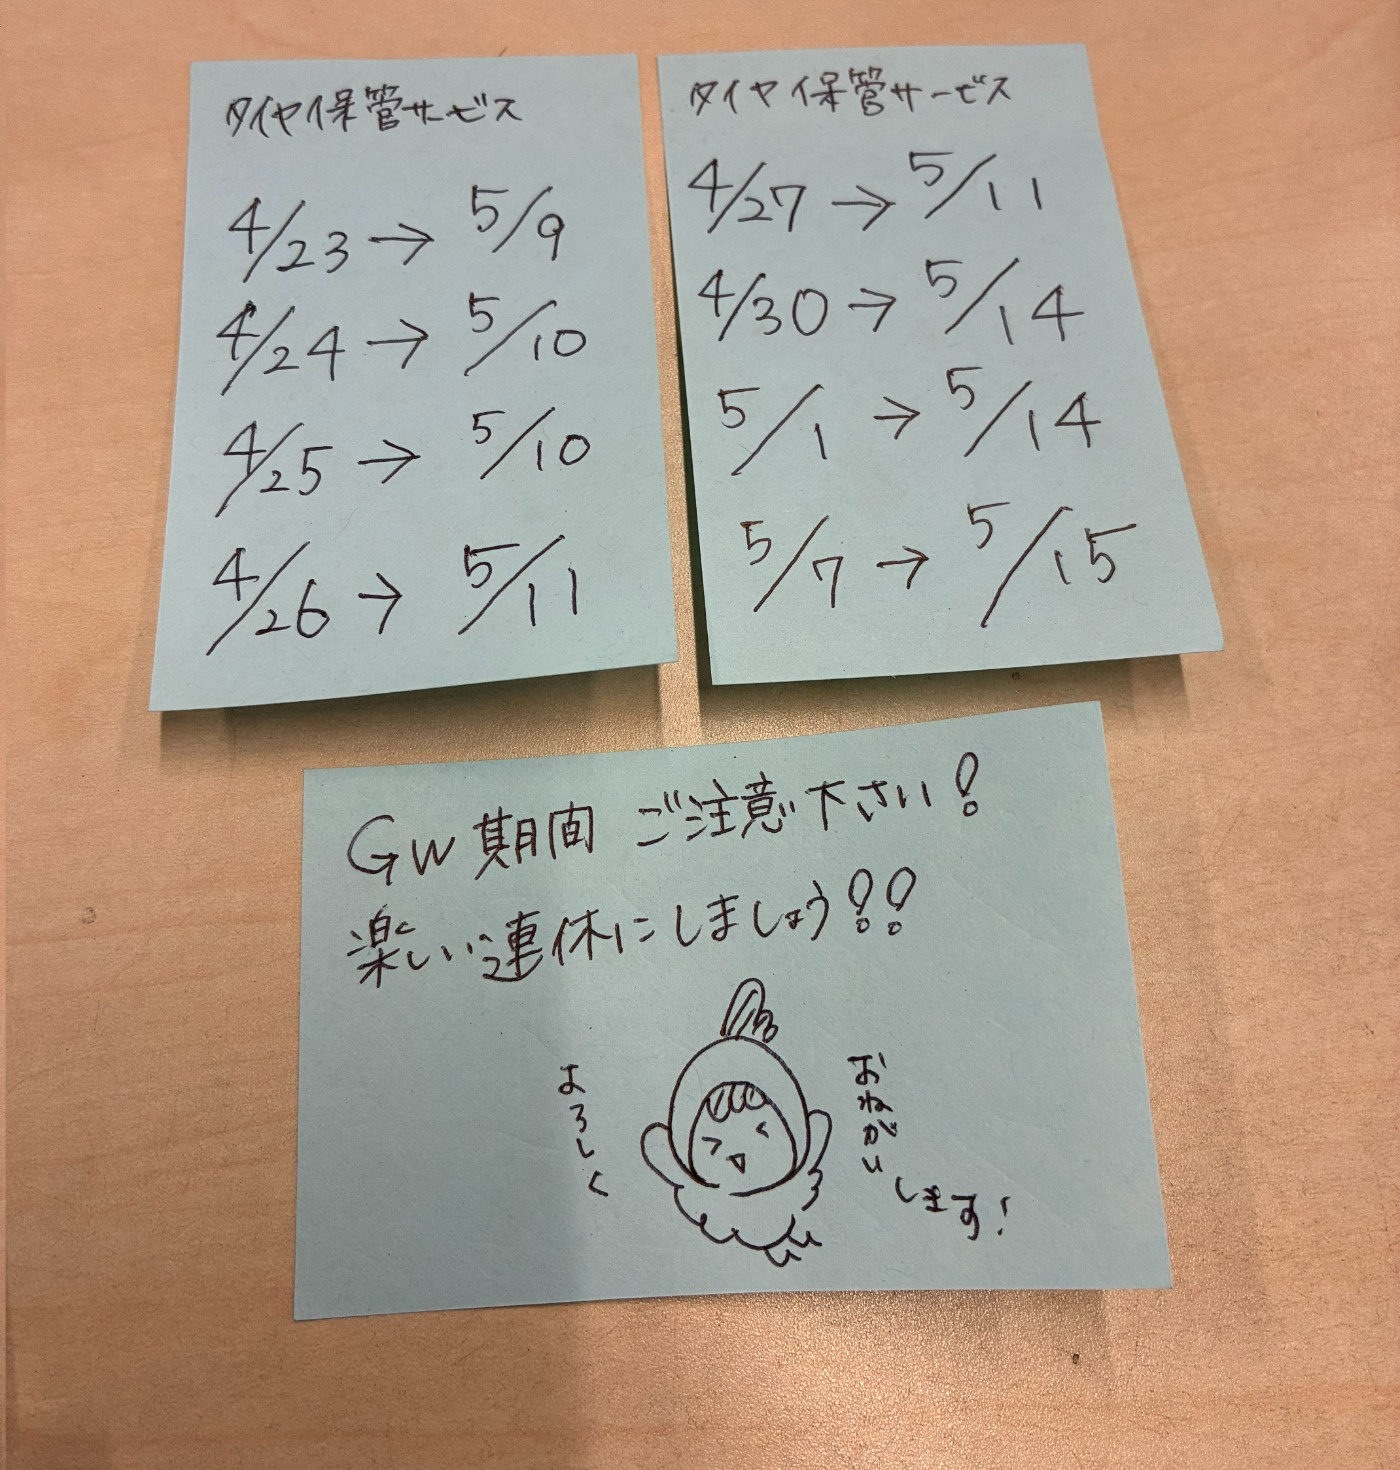 タイヤ保管サービス
4/23→5/9
4/24→5/10
4/25→5/10
4/26→5/11
タイヤ保管サービス
4/27→5/11
4/30→5/14
5/1→5/14
5/7→5/15
GW期間 ご注意下さい!
楽しい連休にしましょう!!
よろしく
おねがいします!